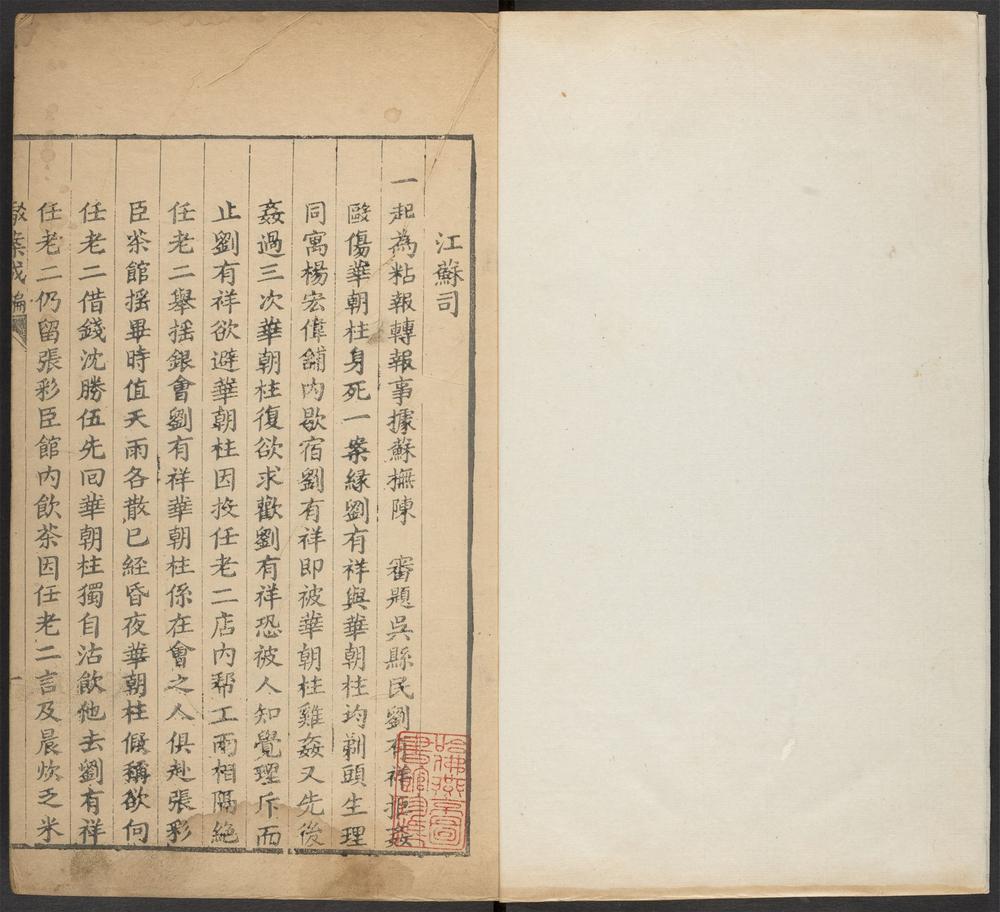 江蘇司
一起為粘報轉報事據蘇撫陳　審題吳縣民劉有祥拒姦
毆傷華朝柱身死一案緣劉有祥與華朝柱均剃頭生理
同寓楊宏偉舖內歇宿劉有祥即被華朝柱雞姦又先後
姦過三次華朝柱復欲求歡劉有祥恐被人知覺理斥而
止劉有祥欲避華朝柱因投任老二店內帮工兩相隔絕
任老二舉揺銀會劉有祥華朝柱係在會之人俱赴張彩
臣茶館揺畢時值天雨各散已經昏夜華朝柱假稱欲向
任老二借錢沈勝伍先回華朝柱獨自沽飲他去劉有祥
任老二仍留張彩臣館內飲茶因任老二言及晨炊乏米
駁案成編
一
哈佛燕京圖
書館